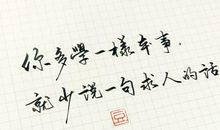 你多學一樣本事，
就少說一句求人的話